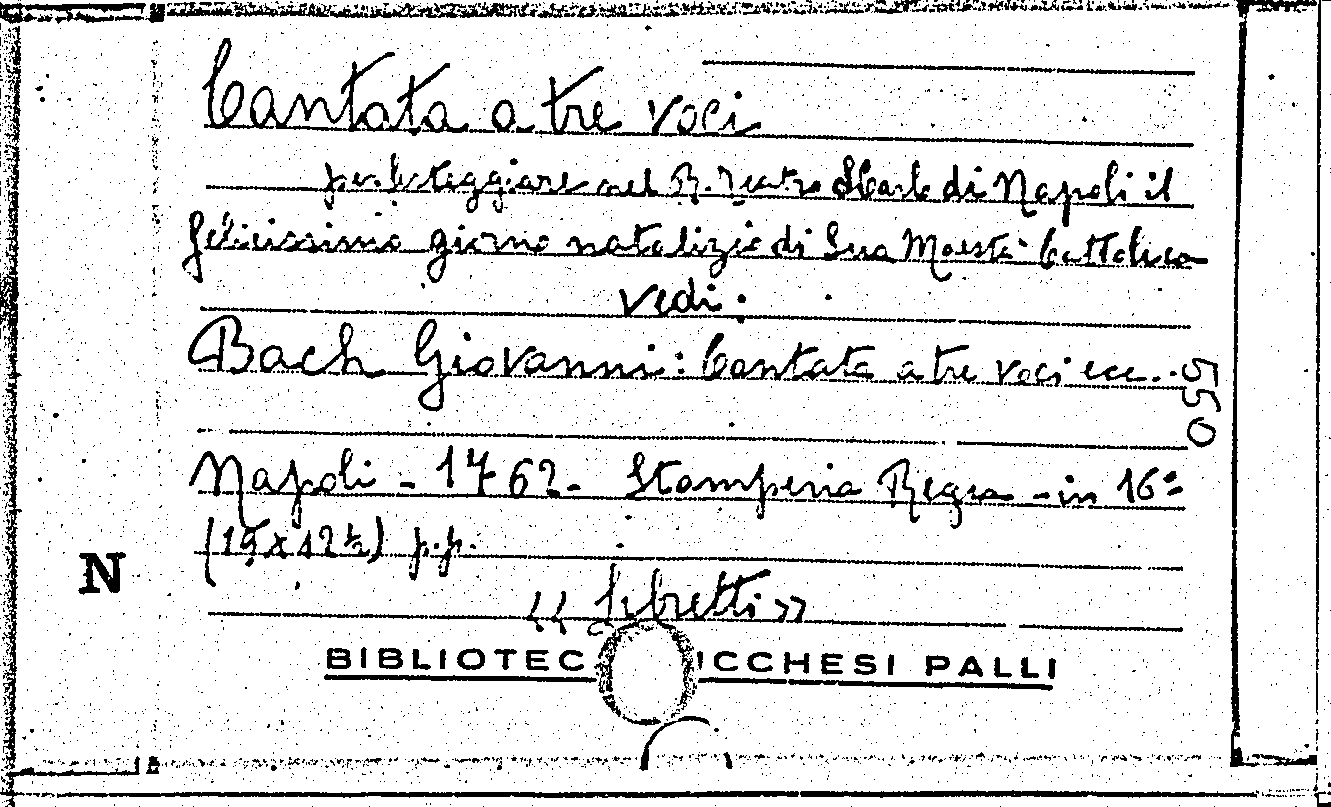 Cantata a tre voci
per festeggiare nel R. Teatro S. Carlo di Napoli il
felicissimo giorno natalizio di Sua Maestà Cattolica
vedi:
Bach Giovanni: Cantata a tre voci ecc...
550
Napoli - 1762 - Stamperia Regia - in 16°
(15 x 12 ½) p.p.
N
« Libretti »
BIBLIOTEC ICCHESI PALLI